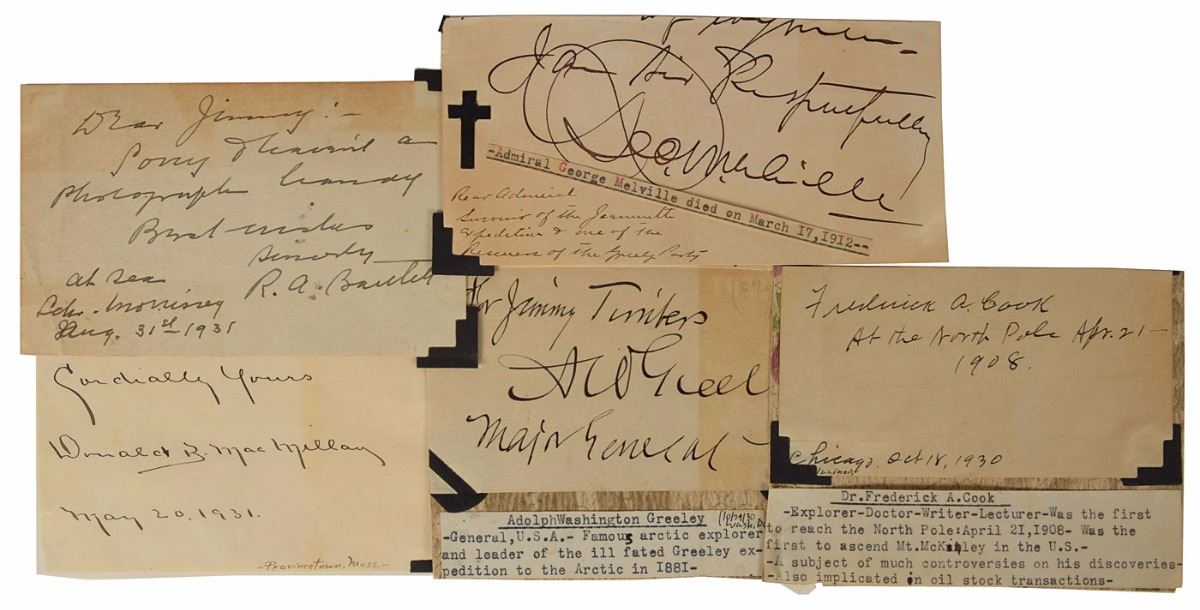 Dear Jimmy:-
Sorry I haven't a
photograph handy
Best wishes
Sincerely
at sea
R. A. Bartlett
Schr. Morrissey
Aug. 31st 1931
of
I am Sir Respectfully
Geo. W. Melville
-Admiral George Melville died on March 17,1912--
Rear Admiral
Survivor of the Jeannette
Expedition & one of the
Rescuers of the Greely Party
Cordially Yours
Donald B. MacMillan
May 20, 1931.
-Provincetown, Mass.-
For Jimmy Timbers
A W Greel
Major General
AdolphWashington Greeley
10/29/30
Wash. D.C.
-General,U.S.A.- Famous arctic explorer
and leader of the ill fated Greeley ex-
pedition to the Arctic in 1881-
Frederick A. Cook
At the North Pole Apr. 21-
1908.
Chicago, Oct 18, 1930
Illinois
Dr.Frederick A.Cook
-Explorer-Doctor-Writer-Lecturer-Was the first
to reach the North Pole:April 21,1908- Was the
first to ascend Mt.McKinley in the U.S.-
-A subject of much controversies on his discoveries-
-Also implicated in oil stock transactions-